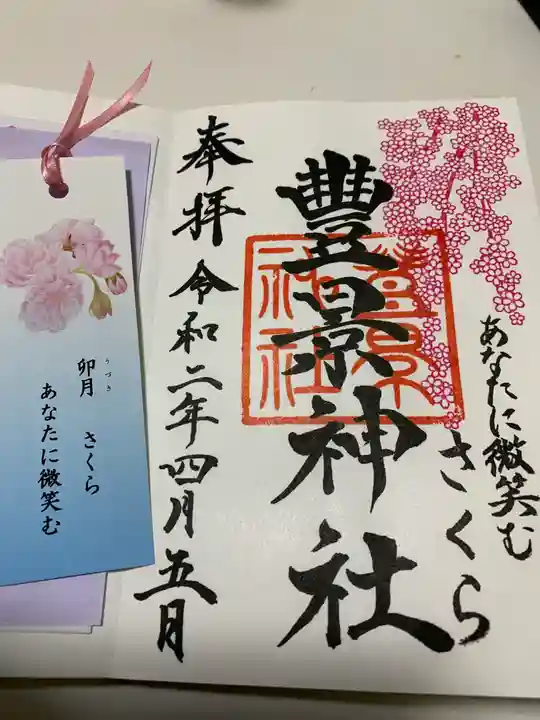 あなたに微笑む
さくら
豊景神社
奉拝 令和二年四月五日
卯月 さくら
うづき
あなたに微笑む